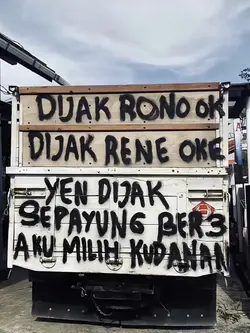 DIJAK RONO OK
DIJAK RENE OKE
YEN DIJAK
SEPAYUNG BER3
AKU MILIH KUDANAN